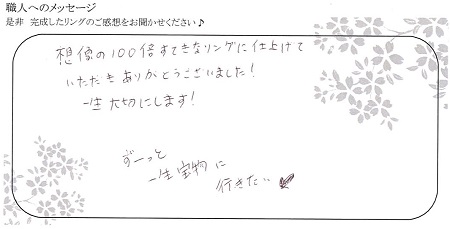 職人へのメッセージ
是非 完成したリングのご感想をお聞かせください♪
想像の100倍すてきなリングに仕上げて
いただきありがとうございました!
一生大切にします!
ずーっと
一生宝物に
行きた